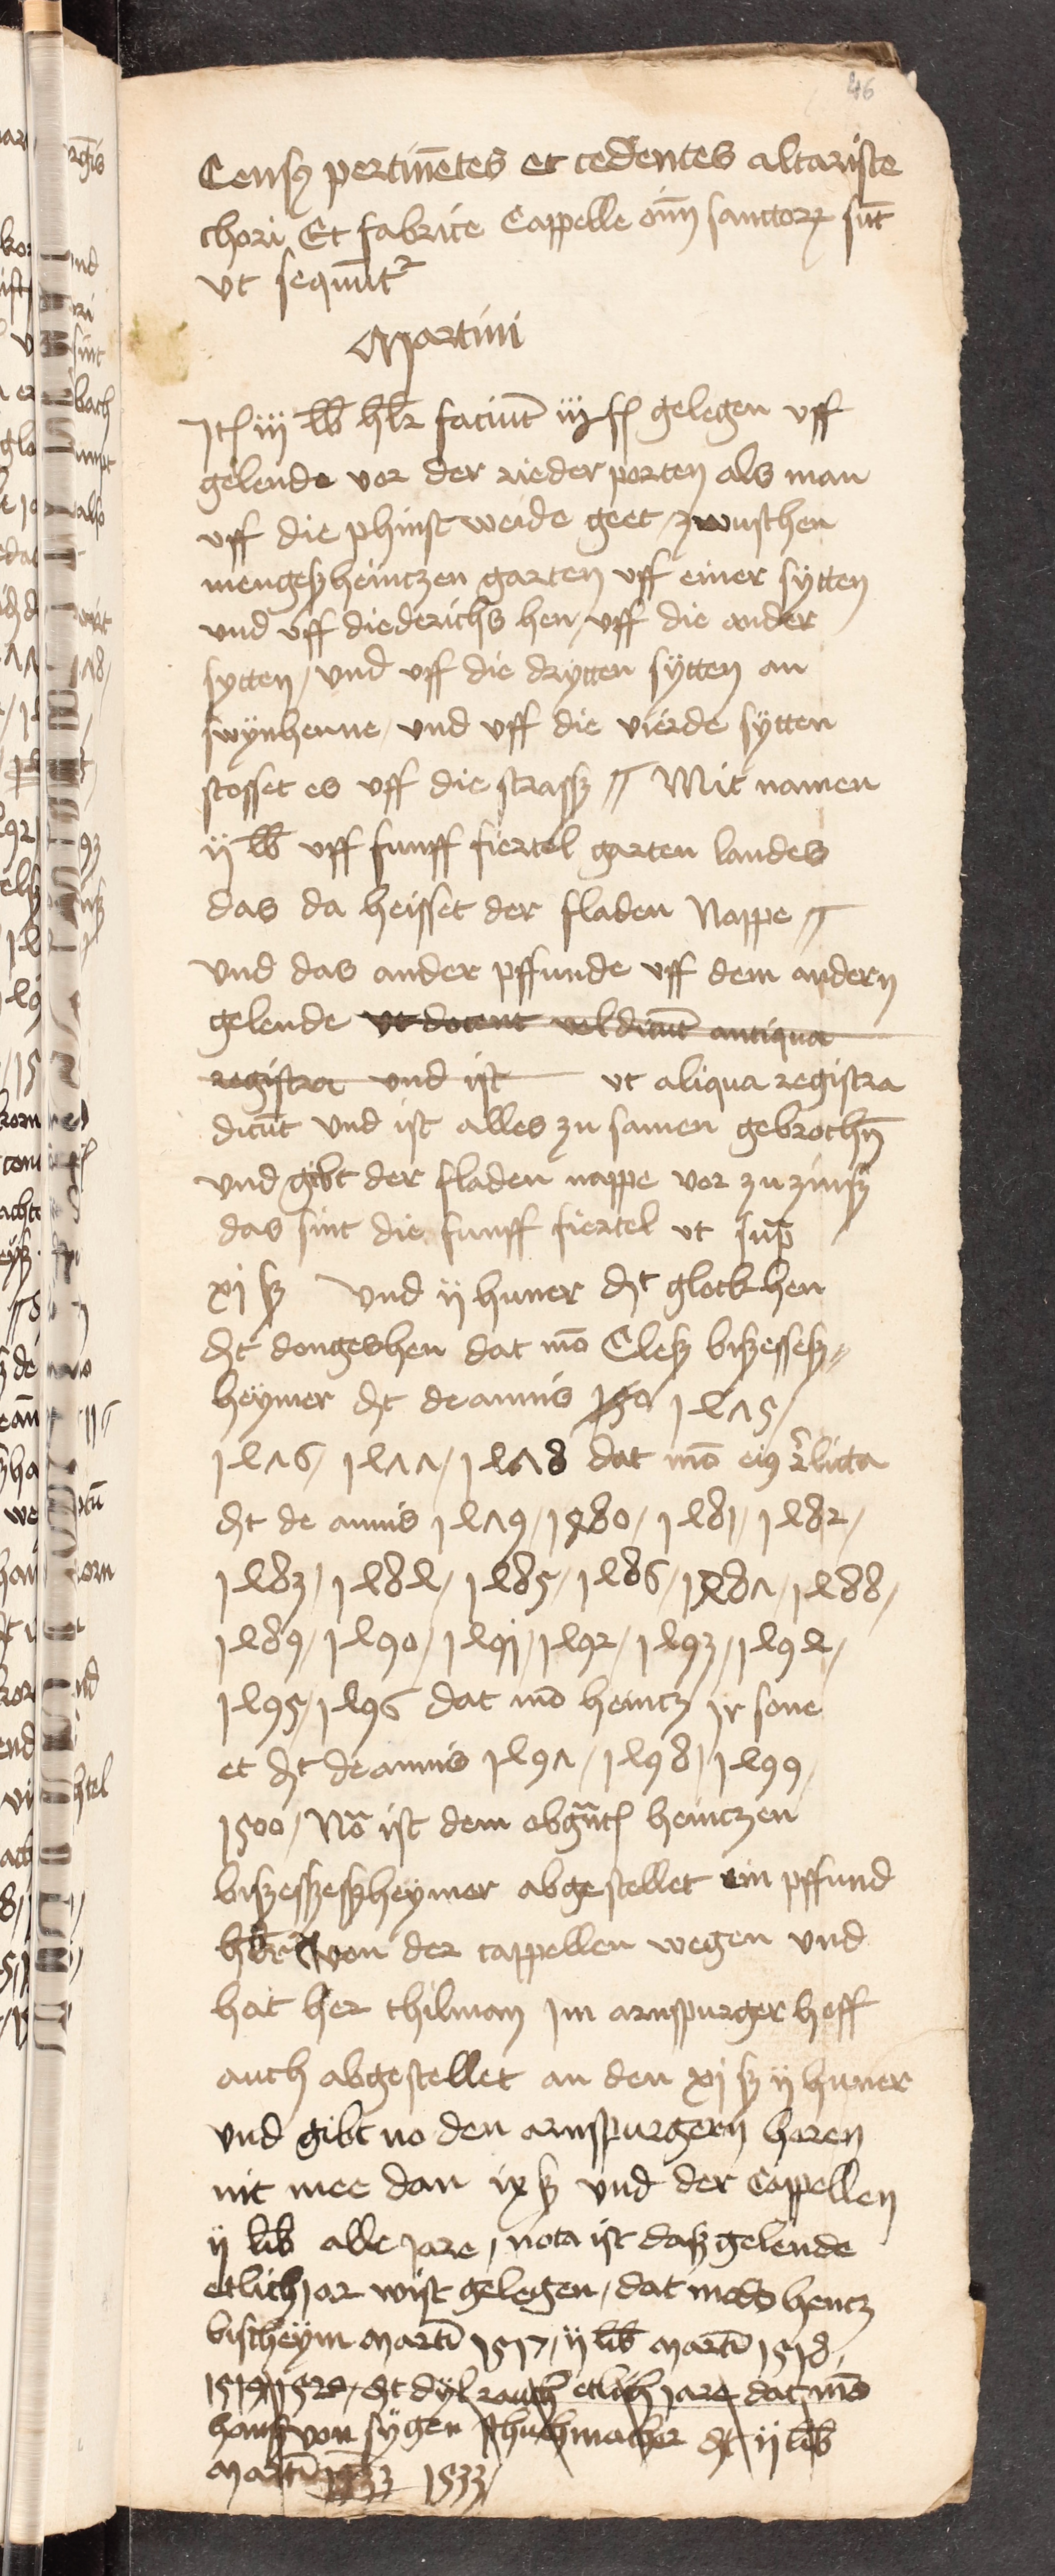 46
Censꝯ pertinētes et cedentes altariste
chori Et fabrice Cappelle om̄ sanctoꝝ su͞t
vt sequu͞t᷑
Martini
Itē iij lb hlr faciu͞t iij ſſ gelegen vff
gelende vor der rieder porten als man
vff die phinst weide geet / zwuschen
mengeszheintzen garten vff einer sytten
vnd vff diederichs hen / vff die ander
sytten / vnd vff die drytten sÿtten an
swÿnhenne / vnd vff die vierde sÿtten
stosset es vff die strassz // Mit namen
ij lb vff funff fiertel garten landes
das da heisset der fladen Nappe //
vnd das ander pffunde vff dem andern
gelende vt docent vel dicu͞t antiqua
registra vnd ist vt aliqua registra
dicu͞t vnd ist alles zu samen gebrochn̄
vnd gibt der fladen nappe vor zu zinsz
das sint die funff fiertel vt sup̄
xj sz vnd ij huner dt glock hen
dt dongeshen dat mō Clesz biszessesz//
heymer dt de annis 1475 /
1476 / 1477 / 1478 dat mō eiꝯ relicta
dt de annis 1479 / 1480 / 1481 / 1482 /
1483 / 1484 / 1485 / 1486 / 1487 / 1488 /
1489 / 1490 / 1491 / 1492 / 1493 / 1494 /
1495 / 1496 dat mō heintz ir sone
et dt de annis 1497 / 1498 / 1499 /
1500 / No͞ ist dem obgn̄t heintzen
biszeszeszheymer abgestellet ein pffund
hlr von der cappellen wegen vnd
hait her thilman im arnspurger hoff
auch abgestellet an den xj sz ij huner
vnd gibt no den arnspurgern heren
nit mee dan ix sz vnd der Cappellen
ij lib alle jare / nota ist dasz gelende
etlich jar wist gelegen / dat modo hentz
bischeym martī 1517 / ij lib martī 1518 /
1519 / 1520 / dt dyl rauch etlich jare dat mō
hansz von sygen schuchmacher dt ij lib
martī 1533 /